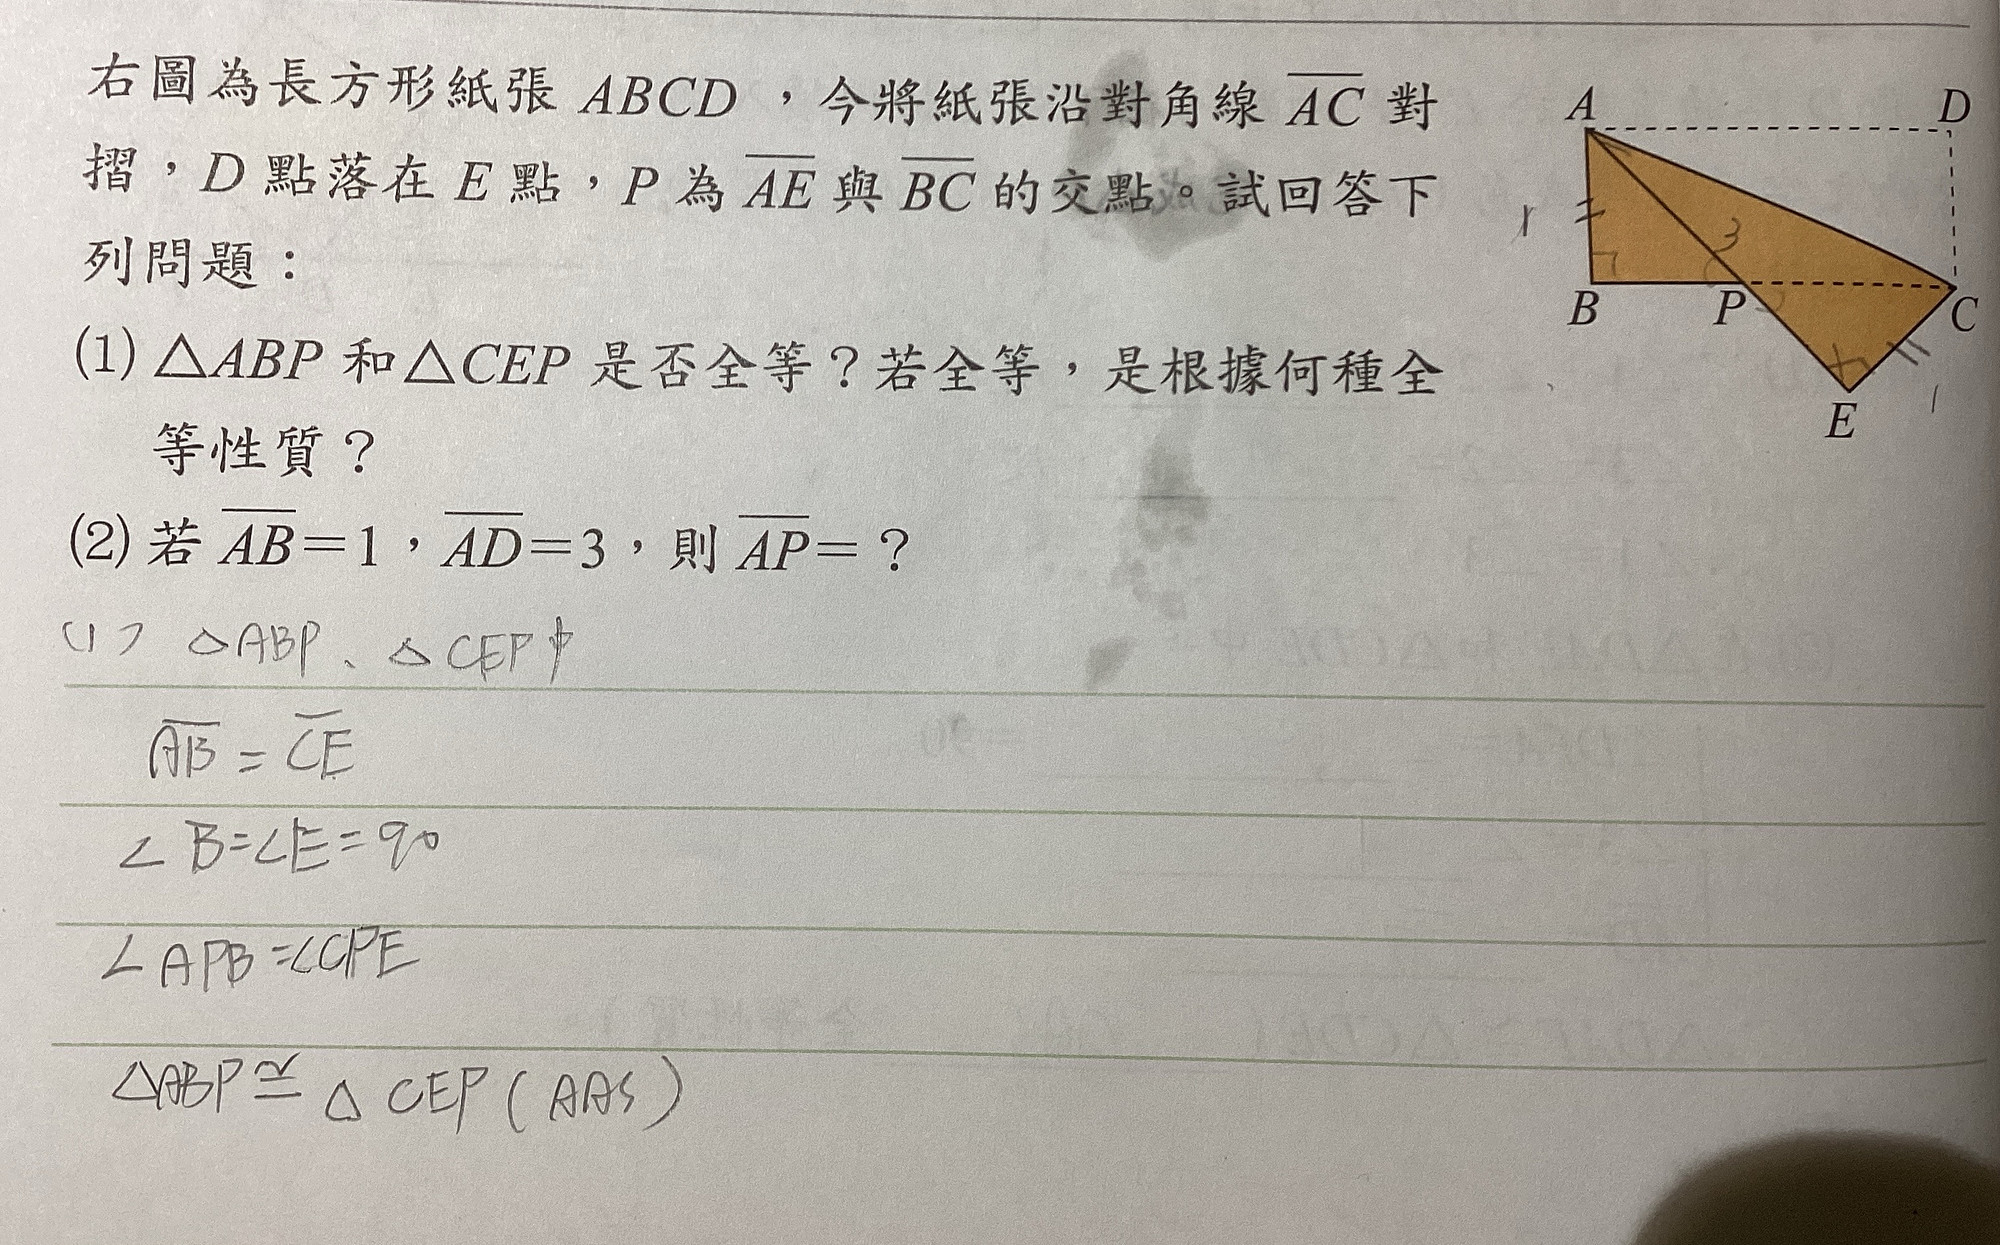 右圖為長方形紙張 ABCD ，今將紙張沿對角線 AC 對
摺，D 點落在 E 點，P 為 AE 與 BC 的交點。試回答下
列問題：
(1) △ABP 和△CEP 是否全等？若全等，是根據何種全
等性質？
(2) 若 AB＝1，AD＝3，則 AP＝？
A
D
B
P
C
E
3
1
1
(1) △ABP、△CEP中
AB = CE
∠B=∠E=90
∠APB=∠CPE
△ABP≅△CEP(AAS)